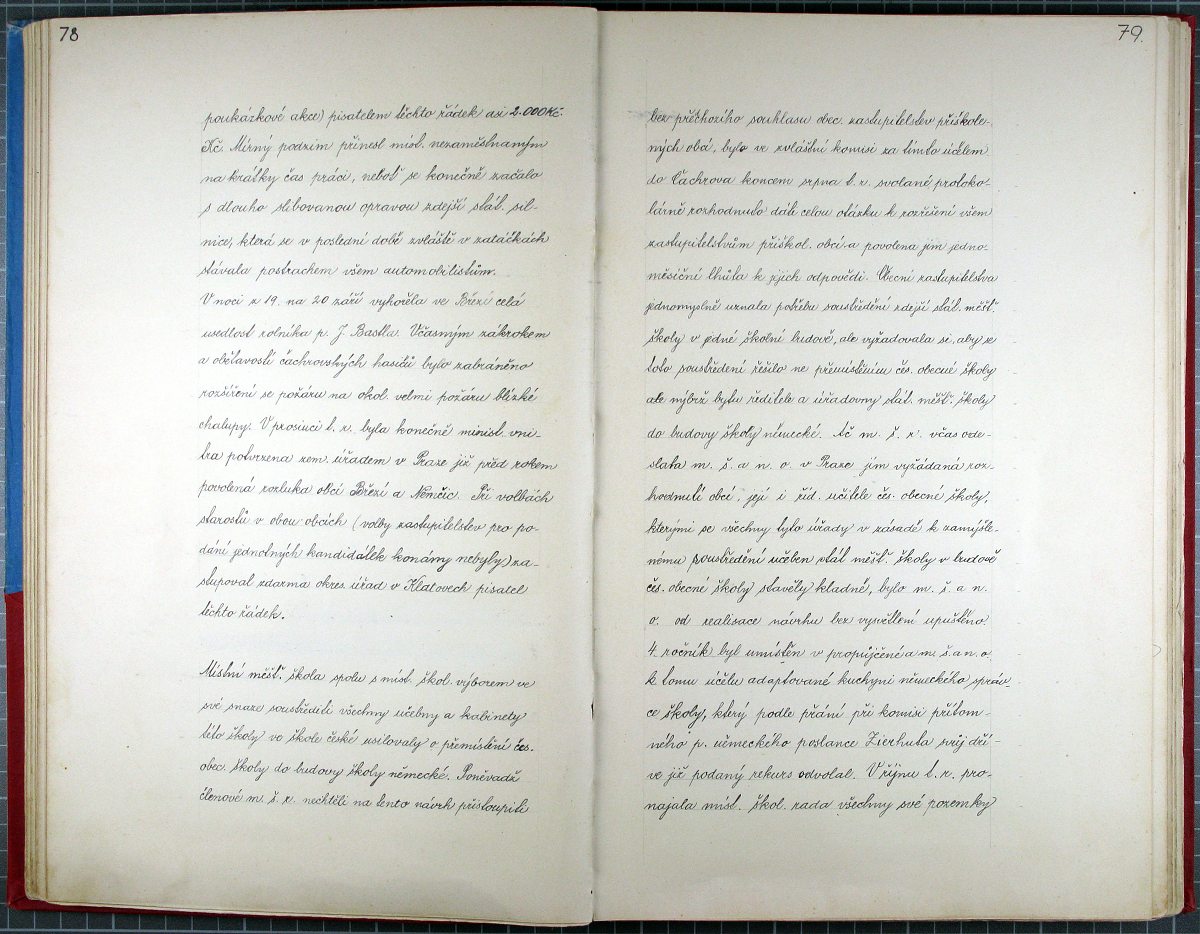 78
poukázkové akce) pisatelem těchto řádek asi 2.000Kč.
Kč. Mírný podzim přinesl míst. nezaměstnaným
na krátký čas práci, neboť se konečně začalo
s dlouho slibovanou opravou zdejší stát. sil-
nice, která se v poslední době zvláště v zatáčkách
stávala postrachem všem automobilistům.
V noci z 19. na 20 září vyhořela ve Březí celá
usedlost rolníka p. J. Bastla. Včasným zákrokem
a obětavostí čachrovských hasičů bylo zabráněno
rozšíření se požáru na okol. velmi požáru blízké
chalupy. V prosinci t. r. byla konečně minist. vni-
tra potvrzena zem. úřadem v Praze již před rokem
povolená rozluka obcí Březí a Němčic. Při volbách
starostů v obou obcích (volby zastupitelstev pro po-
dání jednotných kandidátek konány nebyly) za-
stupoval zdarma okres. úřad v Klatovech pisatel
těchto řádek.
Místní měšť. škola spolu s míst. škol. výborem ve
své snaze soustřediti všechny učebny a kabinety
této školy ve škole české usilovaly o přemístění čes.
obec. školy do budovy školy německé. Poněvadž
členové m. š. r. nechtěli na tento návrh přistoupiti
79.
bez předchozího souhlasu obec. zastupitelstev přiškole-
ných obcí, bylo ve zvláštní komisi za tímto účelem
do Čachrova koncem srpna t. r. svolané protoko-
lárně rozhodnuto dáti celou otázku k rozřešení všem
zastupitelstvům přiškol. obcí a povolena jim jedno-
měsíční lhůta k jejich odpovědi. Obecní zastupitelstva
jednomyslně uznala potřebu soustředění zdejší stát. měšť.
školy v jedné školní budově, ale vyžadovala si, aby se
toto soustředění řešilo ne přemístěním čes. obecné školy
ale nýbrž bytu ředitele a úřadovny stát. měšť. školy
do budovy školy německé. Ač m. š. r. včas ode-
slala m. š. a n. o. v Praze jím vyžádaná roz-
hodnutí obcí, její i říd. učitele čes. obecné školy,
kterými se všechny tyto úřady v zásadě k zamýšle-
nému soustředění učeben stát měšť. školy v budově
čes. obecné školy stavěly kladně, bylo m. š. a n.
o. od realisace návrhu bez vysvětlení upuštěno.
4. ročník byl umístěn v propůjčené a m. š. a n. o.
k tomu účelu adaptované kuchyni německého správ-
ce školy, který podle přání při komisi přítom-
ného p. německého poslance Zierhuta svůj dří-
ve již podaný rekurs odvolal. V říjnu t. r. pro-
najala míst. škol. rada všechny své pozemky